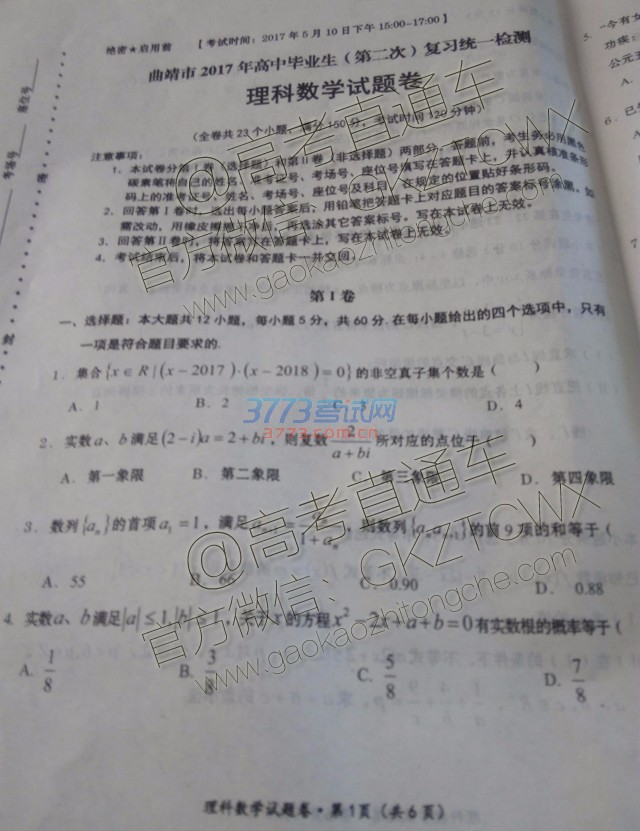 绝密★启用前 【考试时间:2017年5月10日下午15:00-17:00】
曲靖市2017年高中毕业生(第二次)复习统一检测
理科数学试题卷
(全卷共23个小题,满分150分,考试时间120分钟)
注意事项:
1.本试卷分第Ⅰ卷(选择题)和第Ⅱ卷(非选择题)两部分.答题前,考生务必用黑色
碳素笔将自己的姓名、准考证号、考场号、座位号填写在答题卡上,并认真核准条形
码上的准考证号、姓名、考场号、座位号及科目,在规定的位置贴好条形码.
2.回答第Ⅰ卷时,选出每小题答案后,用铅笔把答题卡上对应题目的答案标号涂黑,如
需改动,用橡皮擦干净后,再选涂其它答案标号。写在本试卷上无效。
3.回答第Ⅱ卷时,将答案在答题卡上,写在本试卷上无效。
4.考试结束后,将本试卷和答题卡一并交回.
第Ⅰ卷
一、选择题:本大题共12小题,每小题5分,共60分.在每小题给出的四个选项中,只有
一项是符合题目要求的.
1.集合{x∈R|(x-2017)·(x-2018)=0}的非空真子集个数是( )
A.1 B.2 C.3 D.4
2.实数a、b满足(2-i)a=2+bi,则复数2/(a+bi)所对应的点位于( )
A.第一象限 B.第二象限 C.第三象限 D.第四象限
3.数列{aₙ}的首项a₁=1,满足 1+aₙ,则数列{aₙaₙ₊₁}的前9项的和等于(
A.55 B.66 C.0.90 D.0.88
4.实数a、b满足|a|≤1,|b|≤1,关于x的方程x²-2x+a+b=0有实数根的概率等于(
A.1/8 B.3/8 C.5/8 D.7/8
理科数学试题卷·第1页(共6页)
座位号
考场号
密
封
5.
今有女
功疾:
公元五
A.
6.已
A
7.
8.
@高考直通车
官方微信:GKZTCWX
www.gaokaozhitongche.com
3773考试网
a773.com.cn
@高考直通车
官方微信:GKZTCWX
www.gaokaozhitongche.com